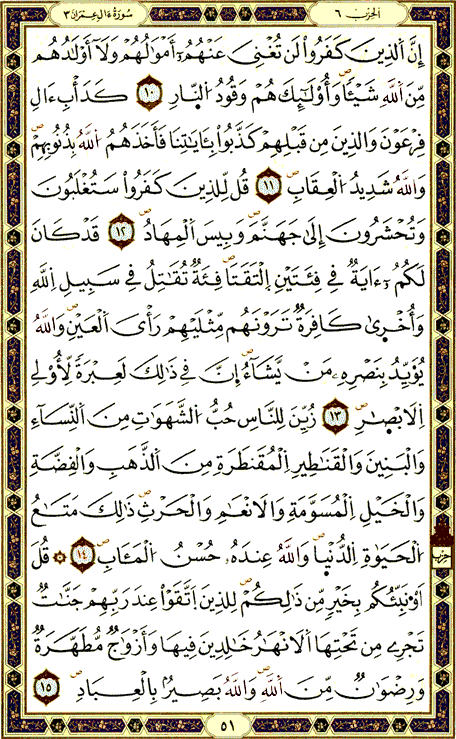 الحزب ٦
سُورَةُ ءَالِ عِمْرَانَ ٣
إِنَّ اَ۬لذِينَ كَفَرُواْ لَن تُغْنِيَ عَنْهُمُۥٓ أَمْوَٰلُهُمْ وَلَآ أَوْلَٰدُهُم
مِّنَ اَ۬للَّهِ شَيْـٔاًۖ وَأُوْلَٰٓئِكَ هُمْ وَقُودُ اُ۬لنّ۪ارِ ١٠ كَدَأْبِ ءَالِ
فِرْعَوْنَ وَالذِينَ مِن قَبْلِهِمْ كَذَّبُواْ بِـَٔايَٰتِنَا فَأَخَذَهُمُ اُ۬للَّهُ بِذُنُوبِهِمْۖ
وَاللَّهُ شَدِيدُ اُ۬لْعِقَابِۖ ١١ قُل لِّلذِينَ كَفَرُواْ سَتُغْلَبُونَ
وَتُحْشَرُونَ إِلَىٰ جَهَنَّمَۖ وَبِيسَ اَ۬لْمِهَادُۖ ١٢ قَدْ كَانَ
لَكُمُۥٓ ءَايَةٞ فِے فِئَتَيْنِ اِ۪لْتَقَتَاۖ فِئَةٞ تُقَٰتِلُ فِے سَبِيلِ اِ۬للَّهِ
وَأُخْر۪ىٰ كَافِرَةٞ تَرَوْنَهُم مِّثْلَيْهِمْ رَأْيَ اَ۬لْعَيْنِۖ وَاللَّهُ
يُؤَيِّدُ بِنَصْرِهِۦ مَنْ يَّشَآءُۖ اِ۪نَّ فِے ذَٰلِكَ لَعِبْرَةٗ لِّأُوْلِے
اِ۬لَابْصٰ۪رِۖ ١٣ زُيِّنَ لِلنَّاسِ حُبُّ اُ۬لشَّهَوَٰتِ مِنَ اَ۬لنِّسَآءِ
وَالْبَنِينَ وَالْقَنَٰطِيرِ اِ۬لْمُقَنطَرَةِ مِنَ اَ۬لذَّهَبِ وَالْفِضَّةِ
وَالْخَيْلِ اِ۬لْمُسَوَّمَةِ وَالَانْعَٰمِ وَالْحَرْثِۖ ذَٰلِكَ مَتَٰعُ
اُ۬لْحَيَوٰةِ اِ۬لدُّنْي۪اۖ وَاللَّهُ عِندَهُۥ حُسْنُ اُ۬لْمَـَٔابِۖ ١٤ ۞ قُلَ
اَوْ۟نَبِّئُكُم بِخَيْرٖ مِّن ذَٰلِكُمْۖ لِلذِينَ اَ۪تَّقَوْاْ عِندَ رَبِّهِمْ جَنَّٰتٞ
تَجْرِے مِن تَحْتِهَا اَ۬لَانْهَٰرُ خَٰلِدِينَ فِيهَا وَأَزْوَٰجٞ مُّطَهَّرَةٞ
وَرِضْوَٰنٞ مِّنَ اَ۬للَّهِۖ وَاللَّهُ بَصِيرُۢ بِالْعِبَادِۖ ١٥
حزب
٥١